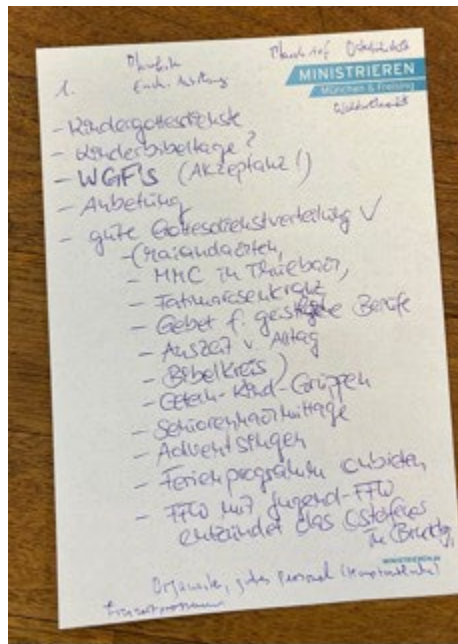 1.
MINISTRIEREN
München & Freising
- Kindergottesdienste
- Kinderbibeltage?
- WGF's (Akzeptanz!)
- Anbetung
- gute Gottesdienstverteilung ✓
- (Maiandachten,
- MMC in
- Fatimarosenkranz
- Gebet f. geistliche Berufe
- Auszeit v. Alltag
- Bibelkreis)
- Eltern-Kind-Gruppen
- Seniorennachmittage
- Adventsingen
- Ferienprogramm anbieten
- FFW mit Jugend-FFW
entzündet das Osterfeuer
in
gutes Personal